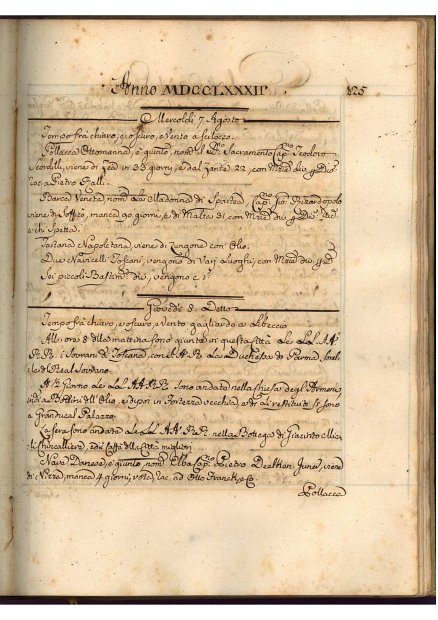 Anno MDCCLXXXII
125
Mercoldì 7 Agosto
Tempo fra chiaro, e oscuro, e Vento a scilocco.
Pollacca Ottomanna, è giunto, nom. il S. Sacramento Cap.no Teodoro
viene di in 35 giorni, e dal Zante 22, con Merci div. p. Div.
rac. a Pietro Galli.
Barca Veneta nom. La Madonna di Cap.no Gio:
viene di manca 90 giorni, e di Malta 31, con Merci div. p. Div.
a chi spetta.
Tartana Napoletana, viene di Lungone con Olio.
Due Navicelli Toscani, vengono di Varj Luoghi, con Merci div. p.
Sei piccoli Bastim.ti div. vengono c. s.
Giovedì 8. Detto
Tempo fra chiaro, e oscuro, e Vento gagliardo a Libeccio
All'ore 8 di sta mattina sono giunte in questa città Le LL. AA.
RR. i Sovrani di Toscana con il A. R. La Duchessa di Parma,
del Real Sovrano.
giorno Le LL. AA. RR. sono andate nella Chiesa degl'Armeni,
indi a d'Olio, e dipoi in Fortezza Vecchia, e di li restituiti si sono
a Granducal Palazzo.
La sera sono andate Le LL. AA. RR. nella Bottega di Giacinto
Chincalliere, ed il Caffè della Città migliori
Nave Danese, è giunto, nom. Elba Cap.no Pietro Junior, viene
di Nizza, manca 4 giorni, vota, rac. ad Otto Franck, e C.
Pollacca